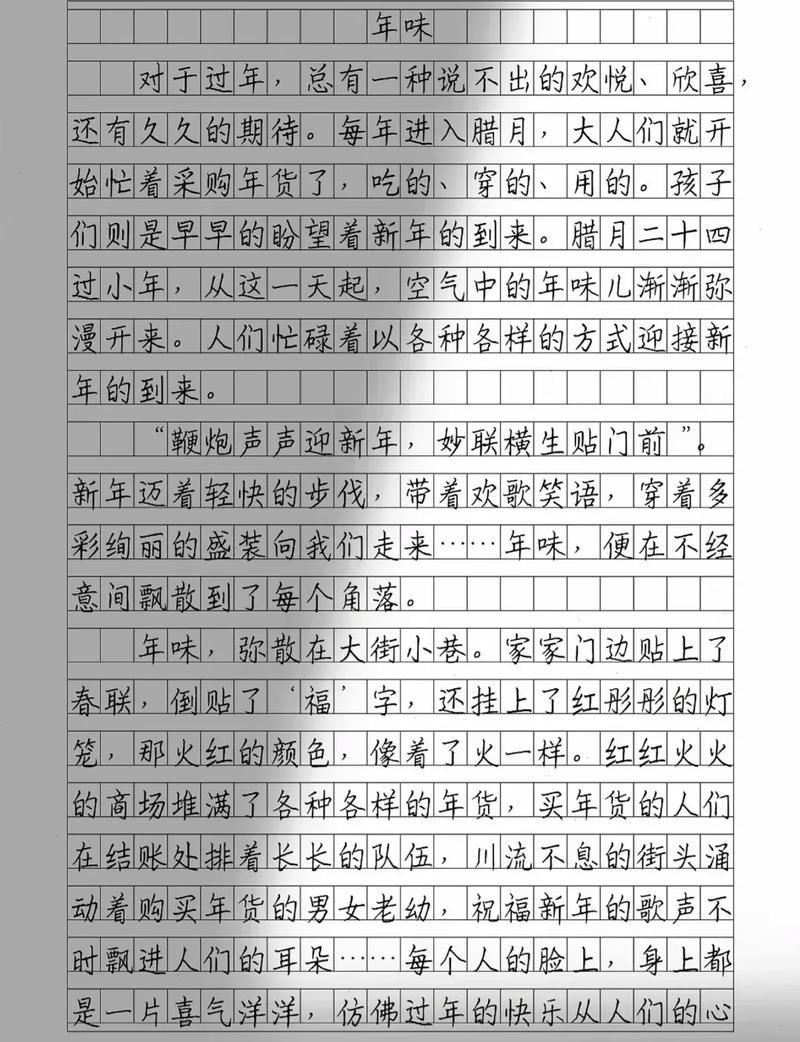 年味
对于过年，总有一种说不出的欢悦、欣喜，
还有久久的期待。每年进入腊月，大人们就开
始忙着采购年货了，吃的、穿的、用的。孩子
们则是早早的盼望着新年的到来。腊月二十四
过小年，从这一天起，空气中的年味儿渐渐弥
漫开来。人们忙碌着以各种各样的方式迎接新
年的到来。
“鞭炮声声迎新年，妙联横生贴门前”。
新年迈着轻快的步伐，带着欢歌笑语，穿着多
彩绚丽的盛装向我们走来……年味，便在不经
意间飘散到了每个角落。
年味，弥散在大街小巷。家家门边贴上了
春联，倒贴了‘福’字，还挂上了红彤彤的灯
笼，那火红的颜色，像着了火一样。红红火火
的商场堆满了各种各样的年货，买年货的人们
在结账处排着长长的队伍，川流不息的街头涌
动着购买年货的男女老幼，祝福新年的歌声不
时飘进人们的耳朵……每个人的脸上，身上都
是一片喜气洋洋，仿佛过年的快乐从人们的心